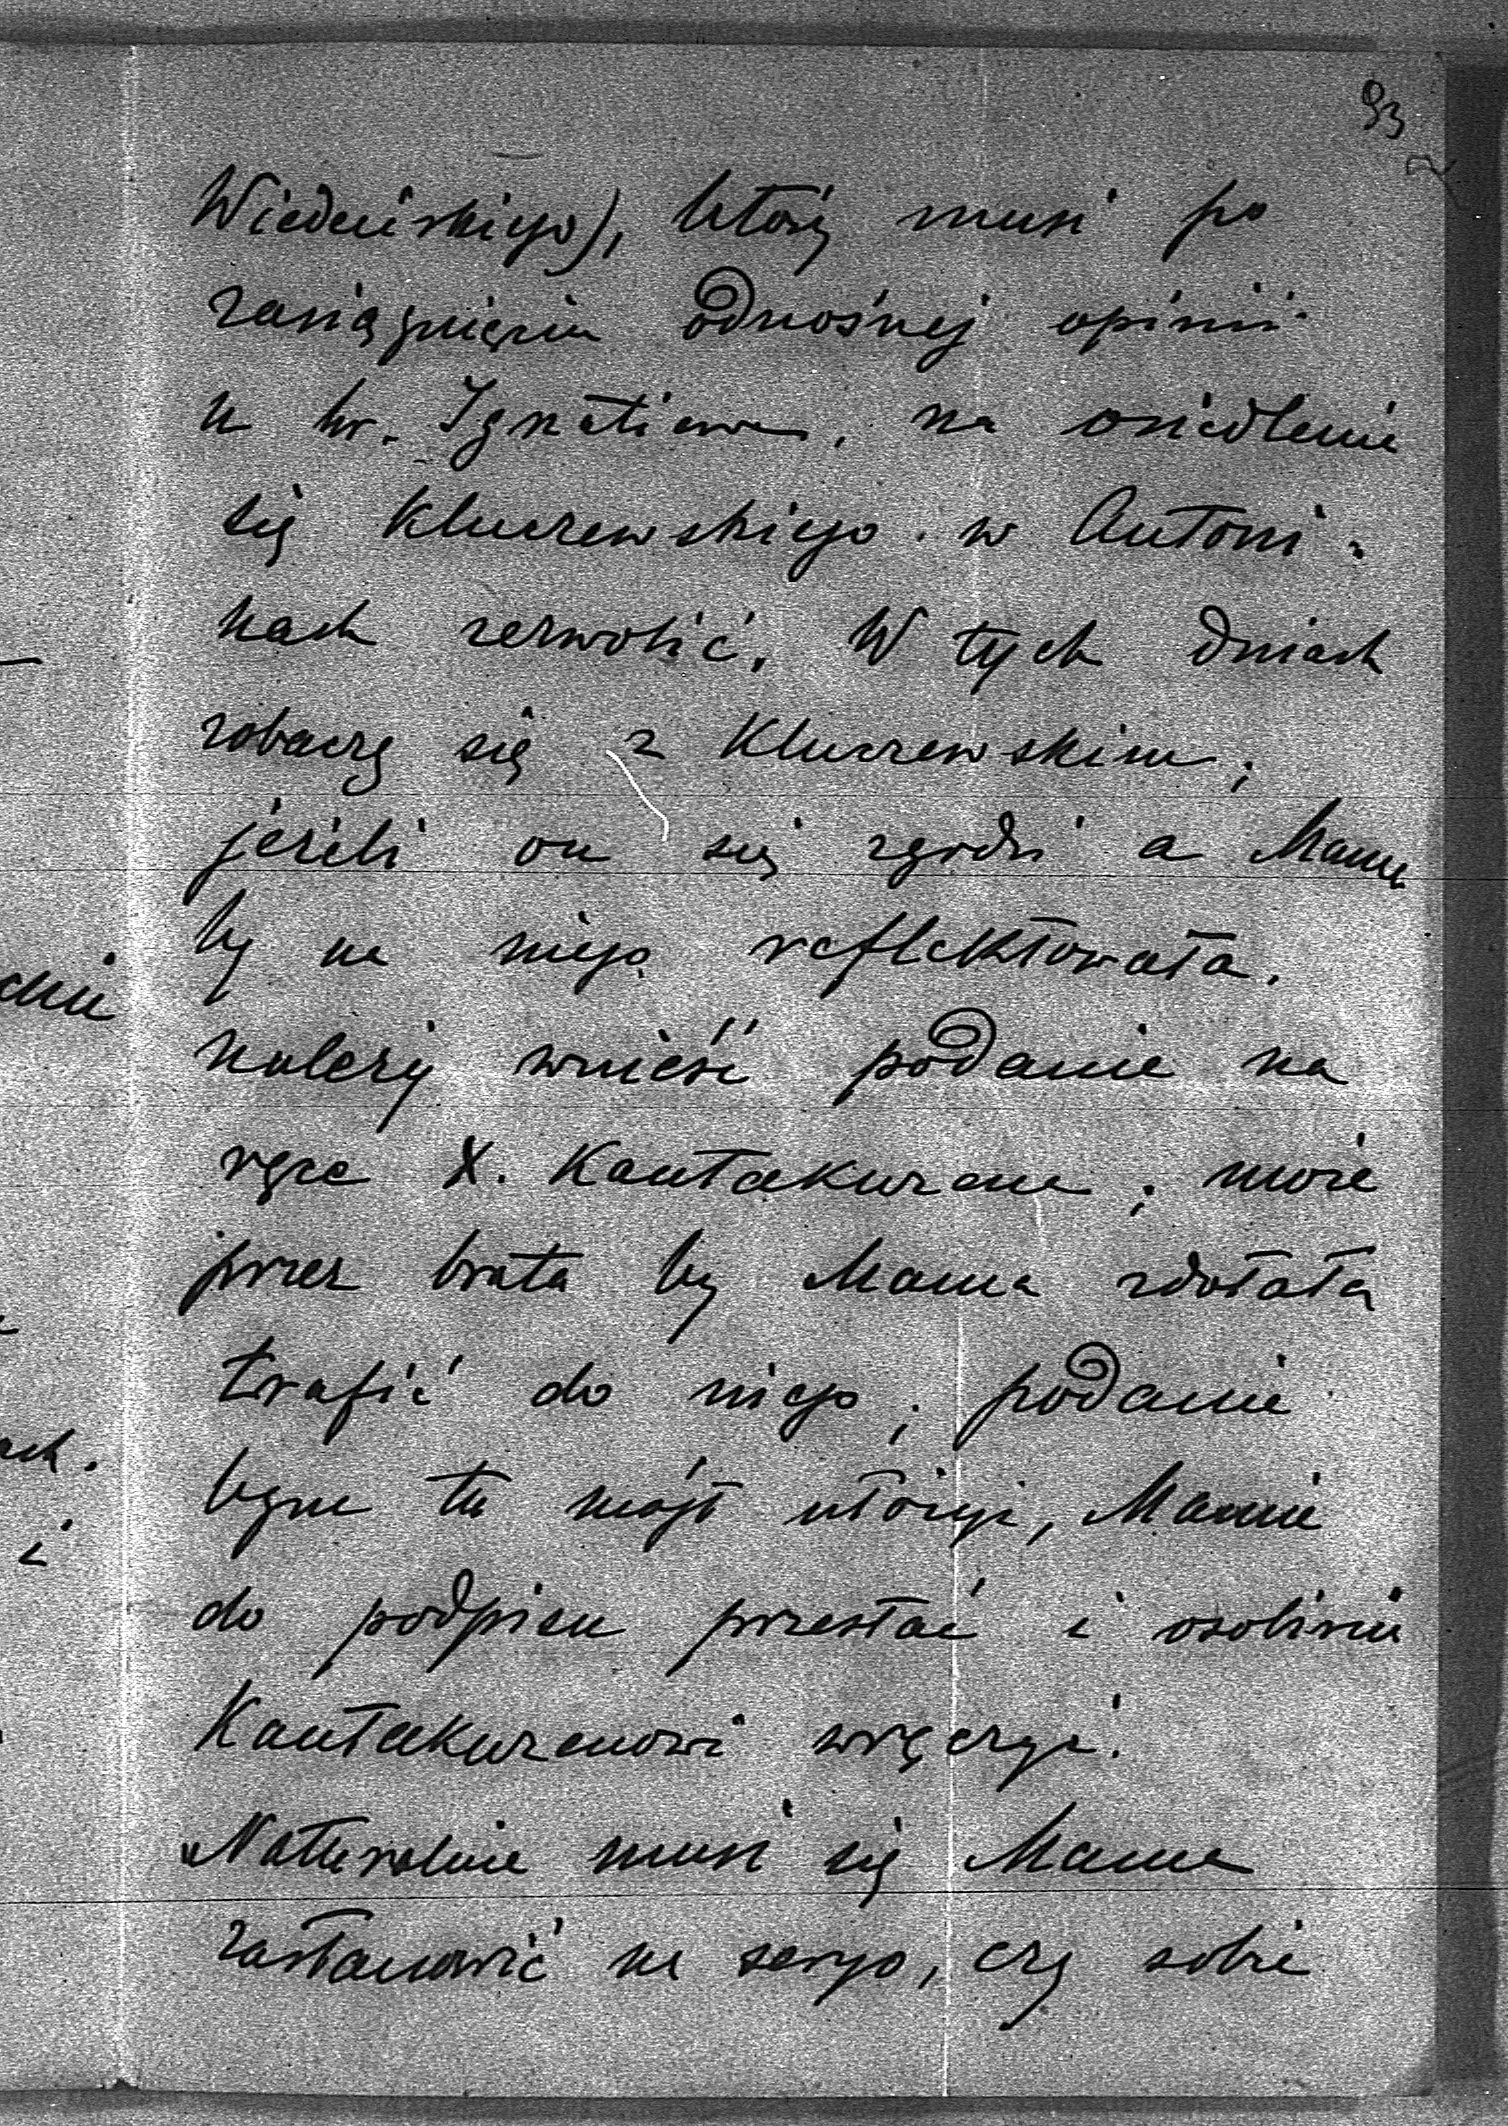 93
Wiedeńskiego), który musi po
zasiągnięciu odnośnej opinii
u hr. Ignatiewa, na osiedlenie
się Kluczewskiego w Antoni-
nach zezwolić. W tych dniach
zobaczę się z Kluczewskim;
jeżeli on się zgodzi a Mama
by na niego reflektowała,
należy wnieść podanie na
ręce X. Kantakuzena; może
przez brata by Mama zdołała
trafić do niego; podanie
bym tu mógł ułożyć, Mamie
do podpisu przesłać i osobiście
Kantakuzenowi wręczyć.
Naturalnie musi się Mama
zastanowić na seryo, czy sobie